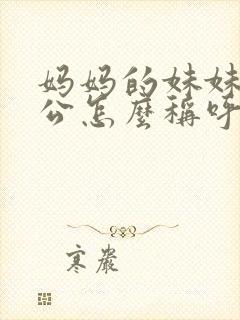 妈妈的妹妹
公怎麼稱呼
寒嚴